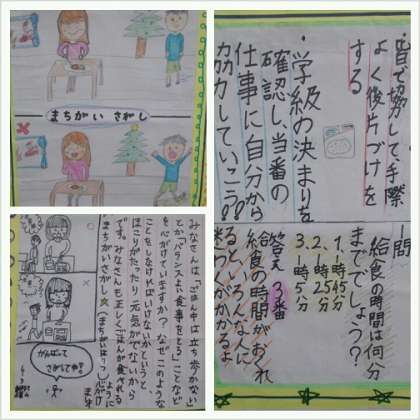 まちがいさがし
みなさんは、「ごはん中は立ち歩かない」
とか「バランスよい食事をとる」ことなど
を心がけていますか？なぜこのような
ことをしなければいけないかというと
ほこりがたったり元気がでないから
です。みなさんも正しくごはんが食べれる
ように
まちがいさがし
がんばって
さがしてね！！
皆で協力して、手際
よく後片づけを
する
・学級の決まりを
確認し、当番の
仕事に自分から
協力していこう。
一問
給食の時間は何分
まででしょう？
1、1時45分
2、1時25分
3、1時5分
答え 3番
給食の時間がおくれ
るといろんな人に
迷わくがかかるよ